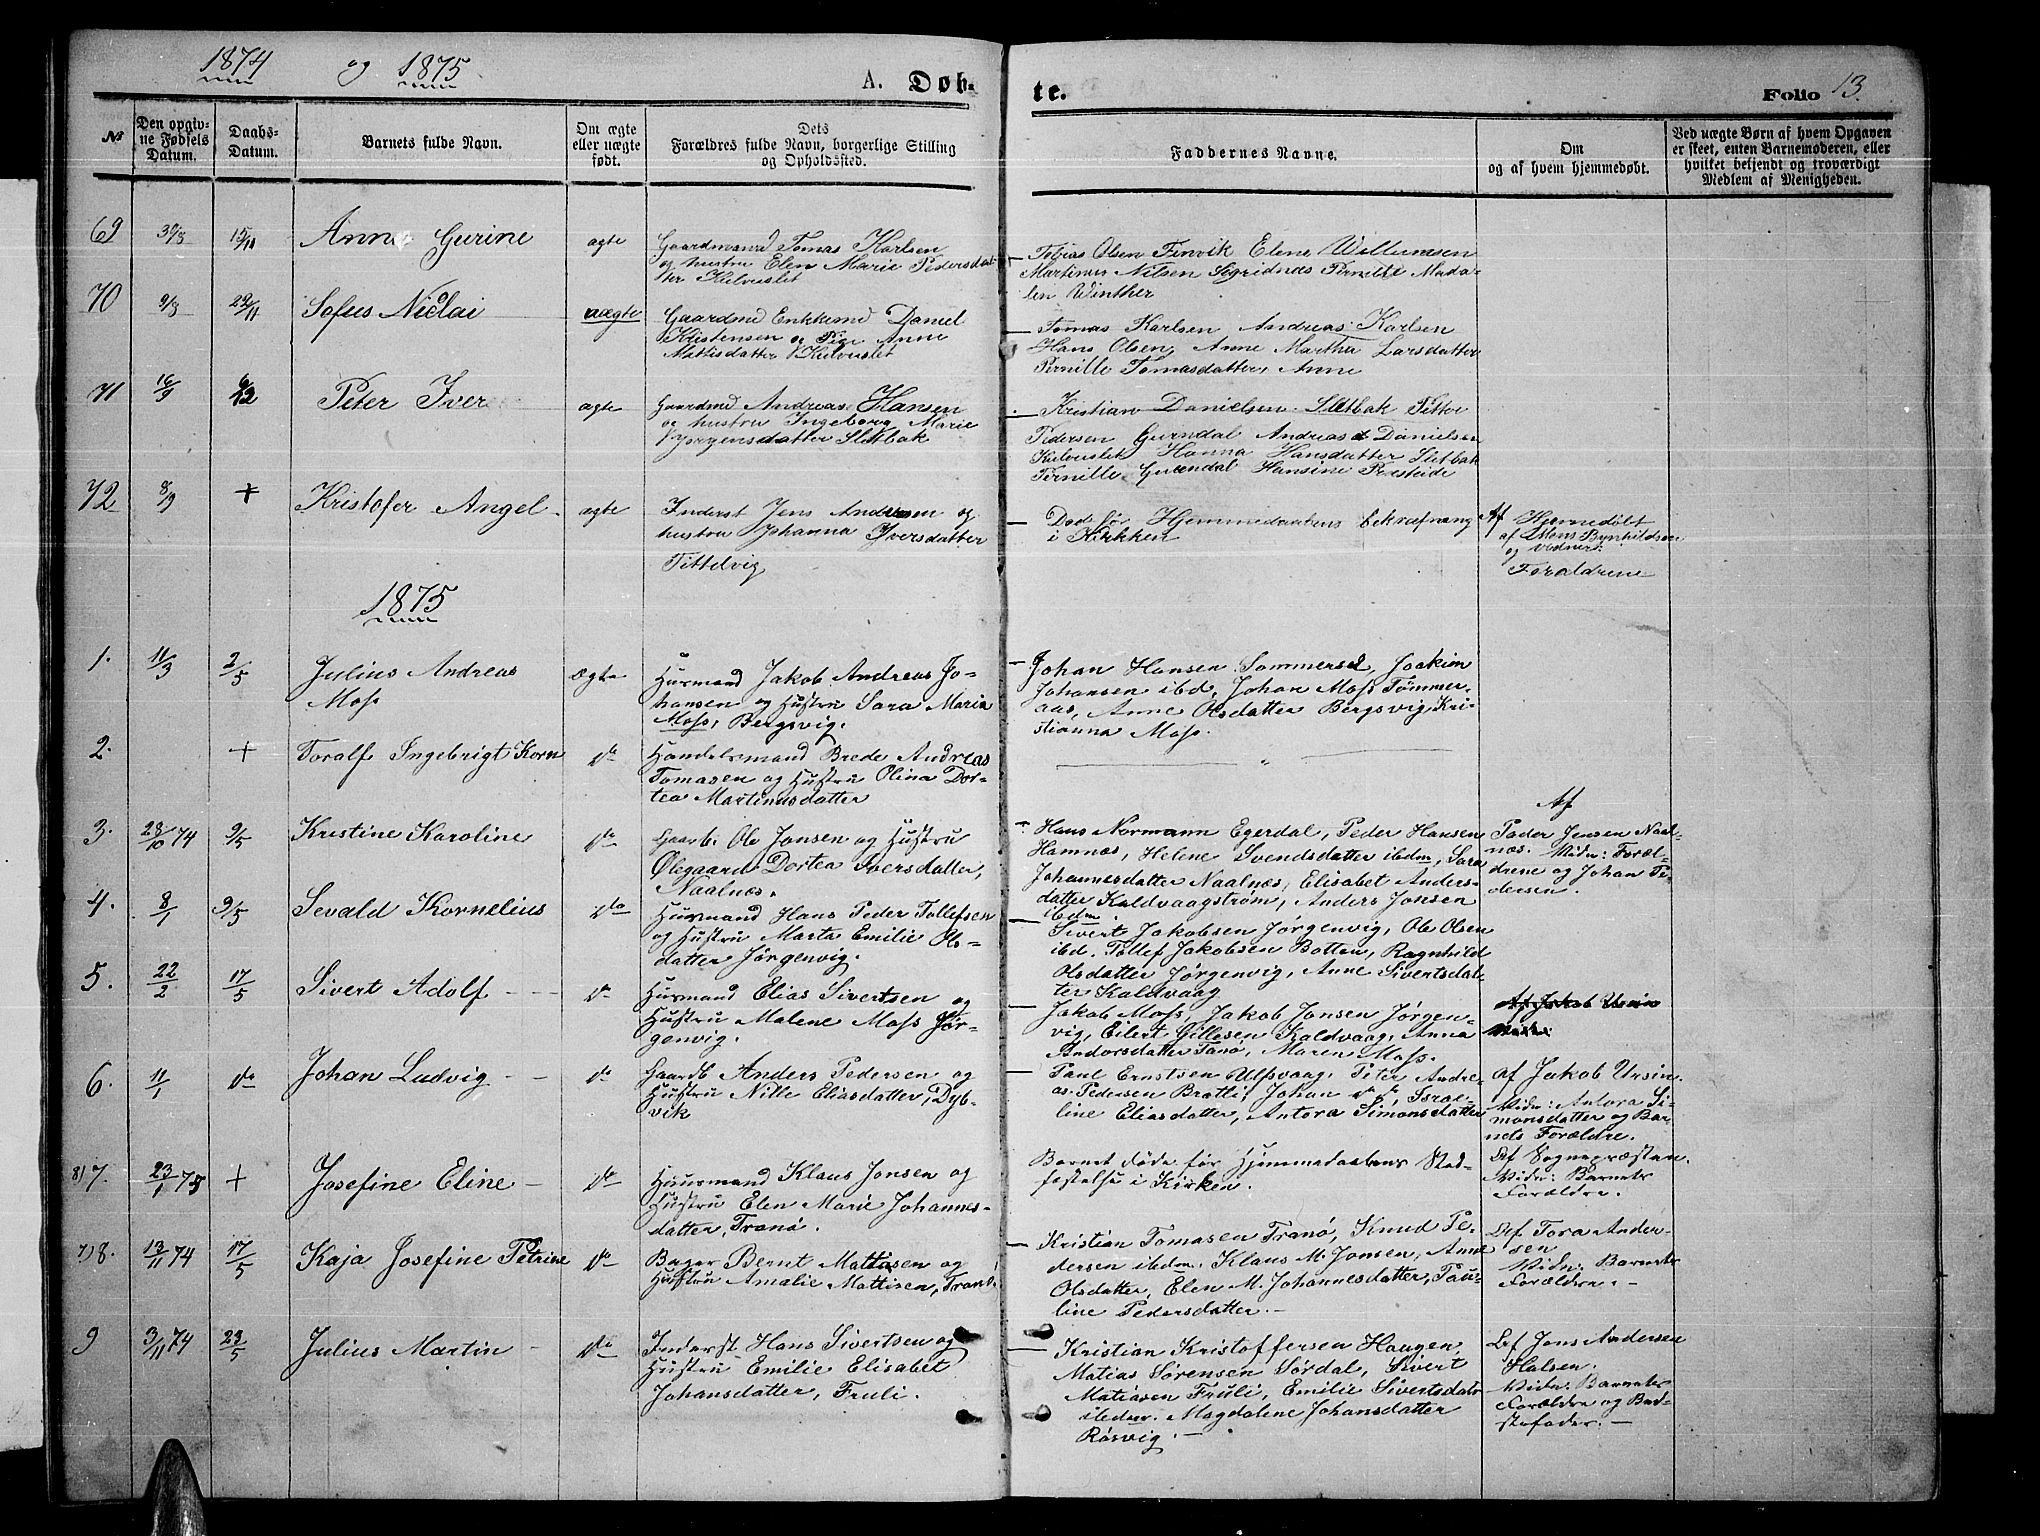 1874 og 1875
A. Døb-
te.
Folio 13.
No
Den opgiv-
ne Fødsels
Datum.
Daabs-
Datum.
Barnets fulde Navn.
Om ægte
eller uægte
født.
Dets
Forældres fulde Navn, borgerlige Stilling
og Opholdssted.
Faddernes Navne.
Om
og af hvem hjemmedøbt.
Ved uægte Børn af hvem Opgaven
er skeet, enten Barnemoderen, eller
hvilket bekjendt og troværdigt
Medlem af Menigheden.
69 30/8 15/11 Anna Gurine ægte
Gaardmand Tomas Karlsen
og hustru Elen Marie Pedersdat
ter Kulvikslet
Tobias Olsen Finvik Elene Willumsen
Martinus Nilsen Sigridnæs Pernille Mada-
len Winther
70 9/8 22/11 Sofus Nicolai uægte
Gaardmd Enkkemd Daniel
Kristensen og Pige Anne
Mathisdatter
Tomas Karlsen, Andreas Karlsen
Hans Olsen, Anne Martha Larsdatter
Pernille Tomasdatter, Anne
71 16/9 6/12 Peter Iver ægte
Gaardmd Andreas Hansen
og hustru Ingeborg Marie
Jørgensdatter Sletbak
Kristian Danielsen Sletbak Petter
Pedersen Gurndal Andreas Danielsen
Hanna Hansdatter Sletbak
Pernille Hansine Presteide
72 8/9 + Kristofer Angel ægte
Inderst Jens Andersen og
hustru Johanna Iversdatter
Tittelvig
Død før Hjemmedaabens bekræfning
i Kirkken
Af Hjemedøbt
af Mons Bynhildsen
og
Forældrene
1875
1. 11/3 2/5 Julius Andreas
Moss
ægte
Husmand Jakob Andreas Jo-
hansen og Hustru Sara Maria
Moss, Bergsvig.
Johan Hansen Sommersel, Joakim
Johansen ibd, Johan Moss Tømmer-
aas, Anne Olsdatter Bergsvig, Kri-
stianna Moss.
2. + Toralf Ingebrigt Korn do
Handelsmand Brede Andreas
Tomasen og Hustru Olina Dor-
tea Martinusdatter
3. 28/10 74 9/5 Kristine Karoline do
Gaarb. Ole Jonsen og Hustru
Ølegaard Dortea Iversdatter,
Naalnæs.
Hans Normann Egerdal, Peder Hansen
Hamnæs, Helene Svendsdatter ibdm, Sara
Johannesdatter Naalnæs, Elisabet Anders-
datter Kaldvaagstrøm, Anders Jonsen
ibdm.
Af
Peder Jensen Naal-
næs. Vidn: Foræl-
drene og Johan Pe-
dersen.
4. 8/1 9/5 Sevald Kornelius do
Husmand Hans Peder Tollefsen
og Hustru Marta Emilie Ols-
datter Jørgenvig.
Sivert Jakobsen Jørgenvig, Ole Olsen
ibd. Tollef Jakobsen Botten, Ragnhild
Olsdatter Jørgenvig, Anne Sivertsdat-
ter Kaldvaag
5. 22/2 17/5 Sivert Adolf do
Husmand Elias Sivertsen og
Hustru Malene Moss Jør-
genvig.
Jakob Moss, Jakob Jonsen Jørgen-
vig, Eilert Gillesen Kaldvaag, Anna
Andorsdatter Tanø, Maren Moss.
Af Jakob Ursin
6. 11/1 do Johan Ludvig do
Gaardb Anders Pedersen og
Hustru Nille Eliasdatter, Dyb-
vik
Paul Ernstsen Ulfsvaag, Peter Andre-
as Pedersen Bratli, Johan do do, Israe-
line Eliasdatter, Antora Simonsdatter
Af Jakob Ursin.
Vidn: Antora Si-
monsdatter og Bar-
nets Forældre.
8) 7. 23/1 75 + Josefine Eline do
Husmand Klaus Jonsen og
Hustru Elen Marie Johannes-
datter, Tranø.
Barnet døde før Hjemmedaabens Stad-
fæstelse i Kirken.
Af Sognepræsten.
Vidn: Barnets
Forældre.
7) 8. 13/11 74 17/5 Kaja Josefine Petrine do
Bager Bernt Mattisen og
Hustru Amalie Mattisen, Tranø.
Kristian Tomasen Tranø, Knud Pe-
dersen ibdm. Klaus M. Jonsen, Anne
Olsdatter, Elen M. Johannesdatter, Pau-
line Pedersdatter.
Af Tora Ander-
sen
Vidn: Barnets
Forældre.
9 3/11 74 23/5 Julius Martin do
Inderst Hans Sivertsen og
Hustru Emilie Elisabet
Johansdatter, Fruli.
Kristian Kristoffersen Haugen,
Matias Sørensen Sørdal, Sivert
Matiasen Fruli, Emilie Sivertsdatr
ibdm. Magdalene Johansdatter
Røsvig.
Af Jens Andersen
Halsen.
Vidn: Barnets
Forældre og Bed-
stefader.